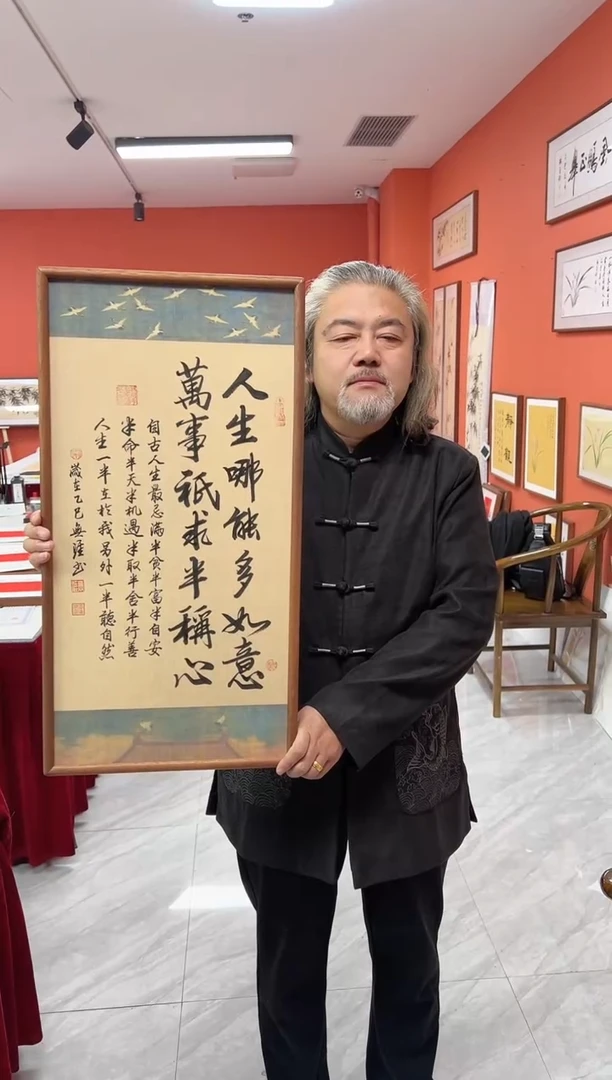 人生哪能多如意
萬事祇求半稱心
自古人生最忌满半贫半富半自安
半命半天半机遇半取半舍半行善
人生一半在於我另外一半聽自然
歲在乙巳無涯书
風鵬正舉